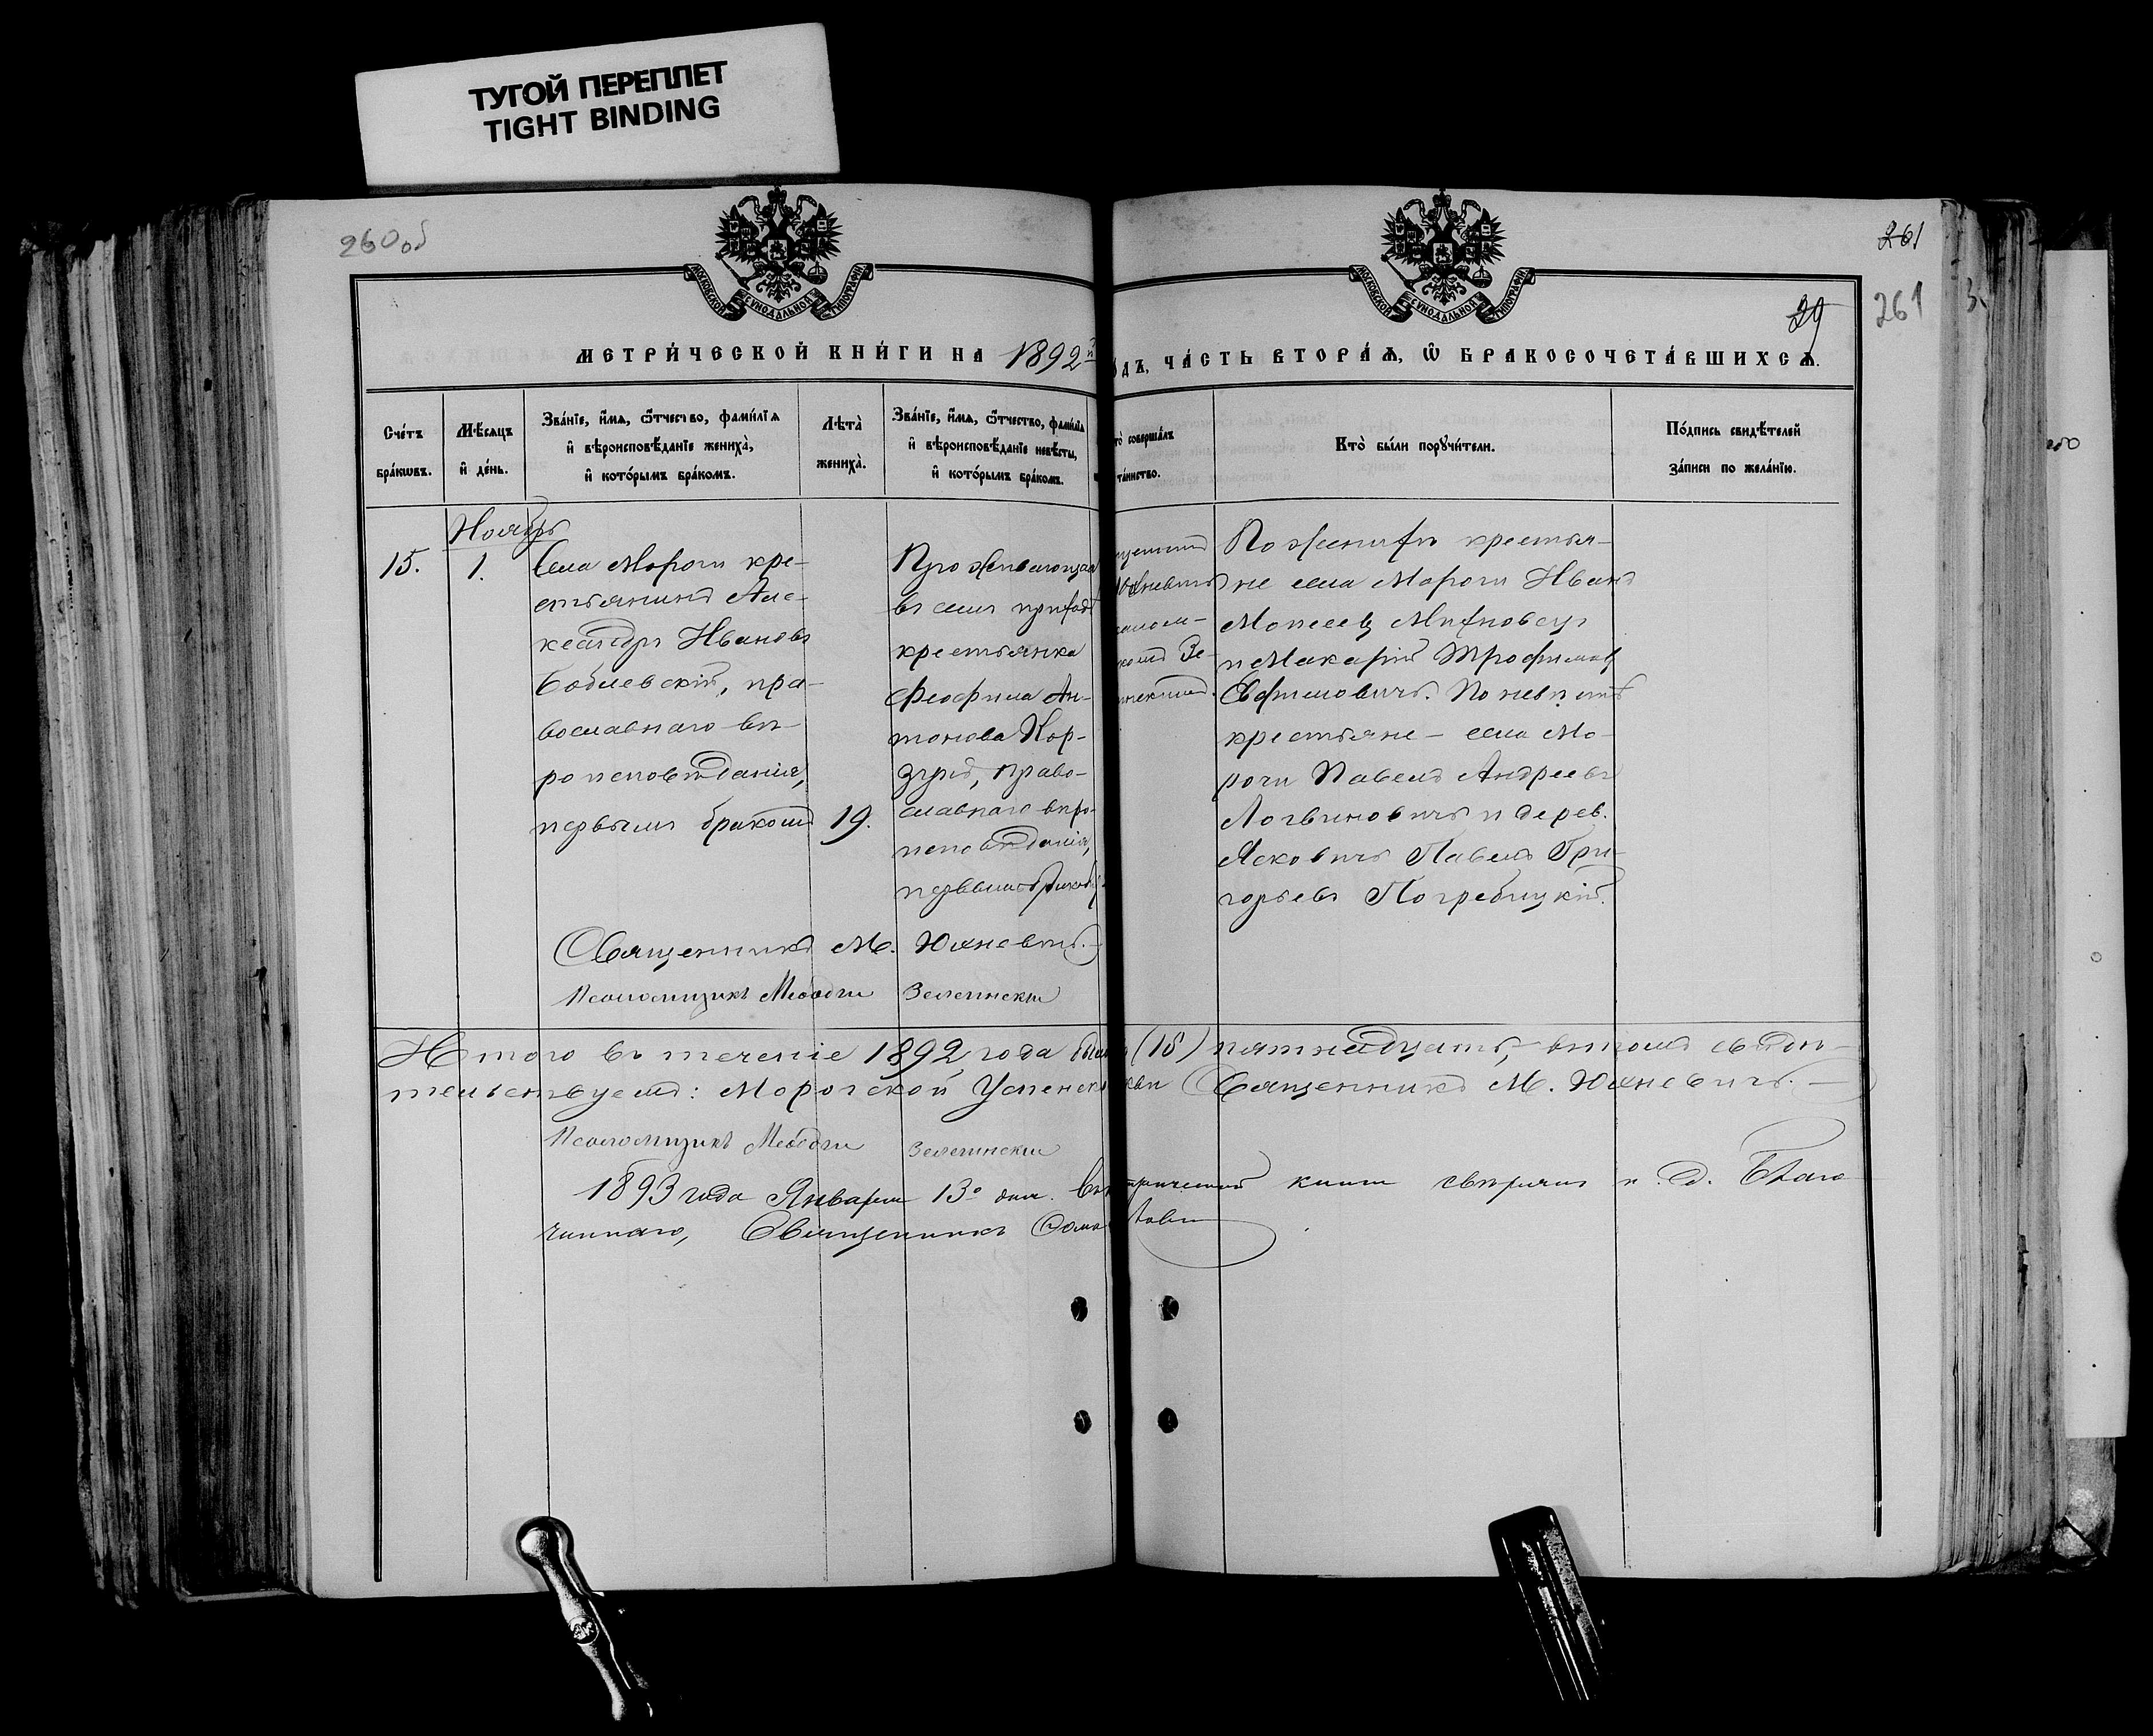 ТУГОЙ ПЕРЕПЛЕТ
TIGHT BINDING
260об
261
29
261
МОСКОВСКОЙ СѴНОДАЛЬНОЙ ТИПОГРАФІИ
МОСКОВСКОЙ СѴНОДАЛЬНОЙ ТИПОГРАФІИ
МЕТРИ́ЧЕСКОЙ КНИ́ГИ НА 1892й
ДЪ, ЧА́СТЬ ВТОРА́Ѧ, Ѽ БРАКОСОЧЕТА́ВШИХСѦ.
Сче́тъ
бра́кѡвъ.
Мѣ́сяцъ
и҆ де́нь.
Зва́нїе, и҆́мѧ, ѻ҆́тчество, фами́лїѧ
и҆ вѣроисповѣ́данїе жениха̀,
и҆ кото́рымъ бра́комъ.
Лѣта̀
жениха̀.
Зва́нїе, и҆́мѧ, ѻ҆́тчество, фами́лїѧ
и҆ вѣроисповѣ́данїе невѣ́сты,
и҆ кото́рымъ бра́комъ.
то̀ соверша́лъ
та́инство.
Кто̀ бы́ли порꙋчи́тели.
По́дпись свидѣ́телей
за́писи по жела́нїю.
Ноябрь
15.
1.
Села Морочи кре-
стьянинъ Але-
ксандръ Ивановъ
Бобневскій, пра-
вославнаго вѣ-
роисповѣданія,
первымъ бракомъ
19.
Проживающая
въ семъ приходѣ
крестьянка
Феофила Ан-
тонова
право-
славнаго вѣро-
исповѣданія,
первымъ бракомъ
Юхневичъ
Зе-
По женихѣ крестья-
не села Морочи Иванъ
Моисеевъ
и Макарій Трофимовъ
Ефимовичъ. По невѣстѣ
крестьяне – села Мо-
рочи Павелъ Андреевъ
Логвиновичъ и дерев.
Ясковичъ Павелъ Гри-
горьевъ Погребицкій.
Священникъ М. Юхневичъ.
Псаломщикъ Меѳодій Зелинскій
Итого въ теченіе 1892 года было (15) пятнадцать, въ томъ свидѣ-
тельствуемъ: Морочской Успенск. цкви Священникъ М. Юхневичъ.
Псаломщикъ Меѳодій Зелинскій
1893 года Января 13о дня. метрической книги свѣрялъ и. д. Благо-
чиннаго, Священникъ